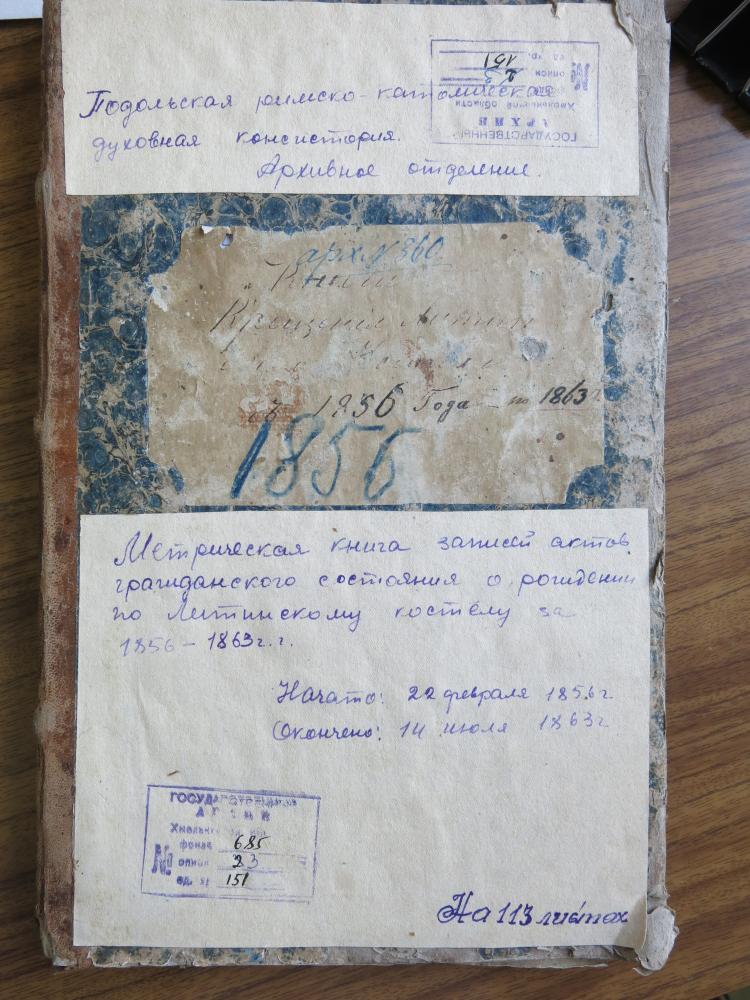 Подольская римско-католическая
духовная консистория.
Архивное отделение.
ГОСУДАРСТВЕННЫЙ
АРХИВ
Хмельницкой области
описи 23
ед. хр. 151
арх. № 860
Книга
Крещения
съ 1856 Года по 1863 г
1856
Метрическая книга записей актов
гражданского состояния о рождении
по Летинскому костёлу за
1856 – 1863 г. г.
Начато: 22 февраля 1856 г.
Окончено: 14 июля 1863 г.
ГОСУДАРСТВЕННЫЙ
АРХИВ
фонда 685
№ описи 23
ед. хр. 151
На 113 листах